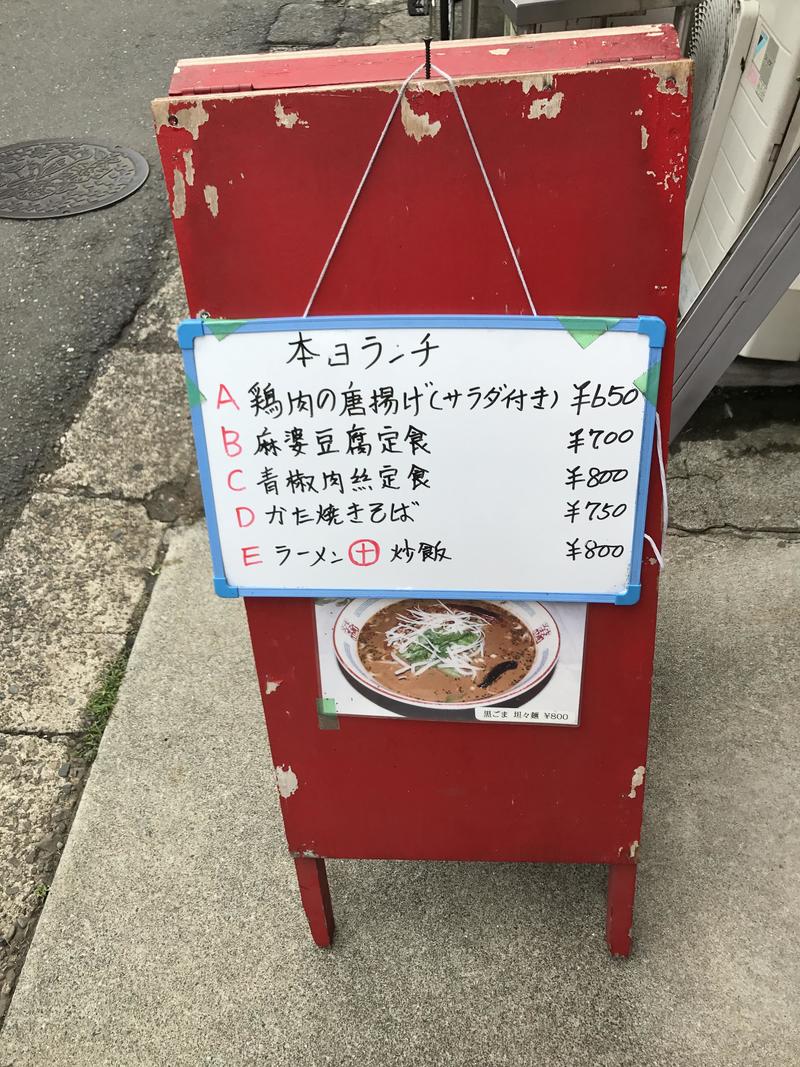 本日ランチ
A 鶏肉の唐揚げ(サラダ付き) ¥650
B 麻婆豆腐定食 ¥700
C 青椒肉絲定食 ¥800
D かた焼きそば ¥750
E ラーメン⊕炒飯 ¥800
黒ごま 坦々麺 ¥800